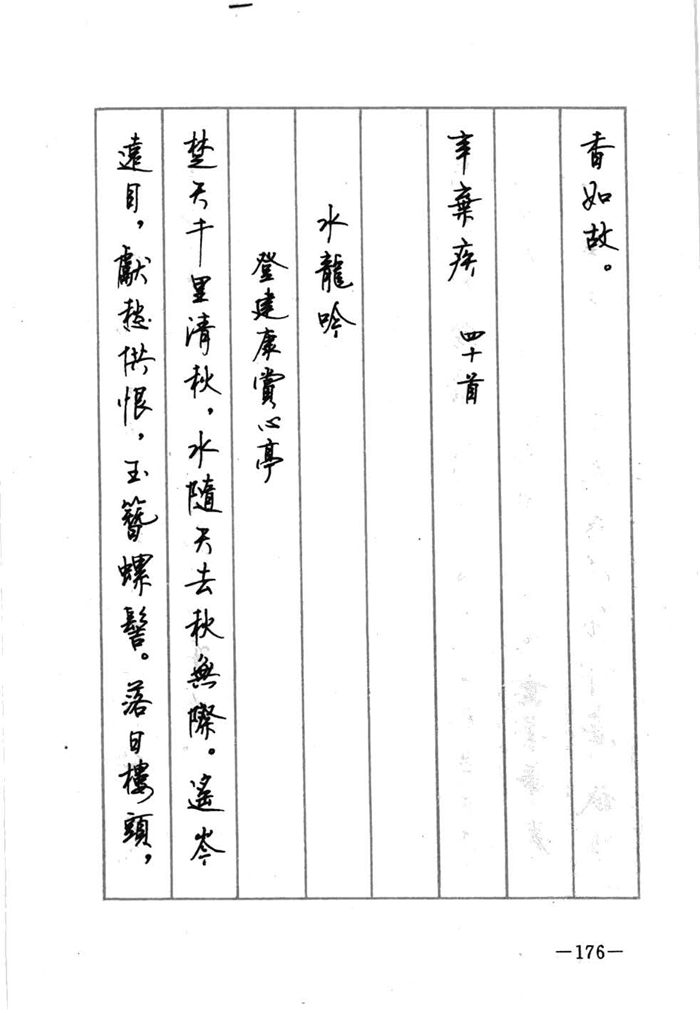 香如故。
辛棄疾　四十首
水龍吟
登建康賞心亭
楚天千里清秋，水隨天去秋無際。遙岑
遠目，獻愁供恨，玉簪螺髻。落日樓頭，
—176—